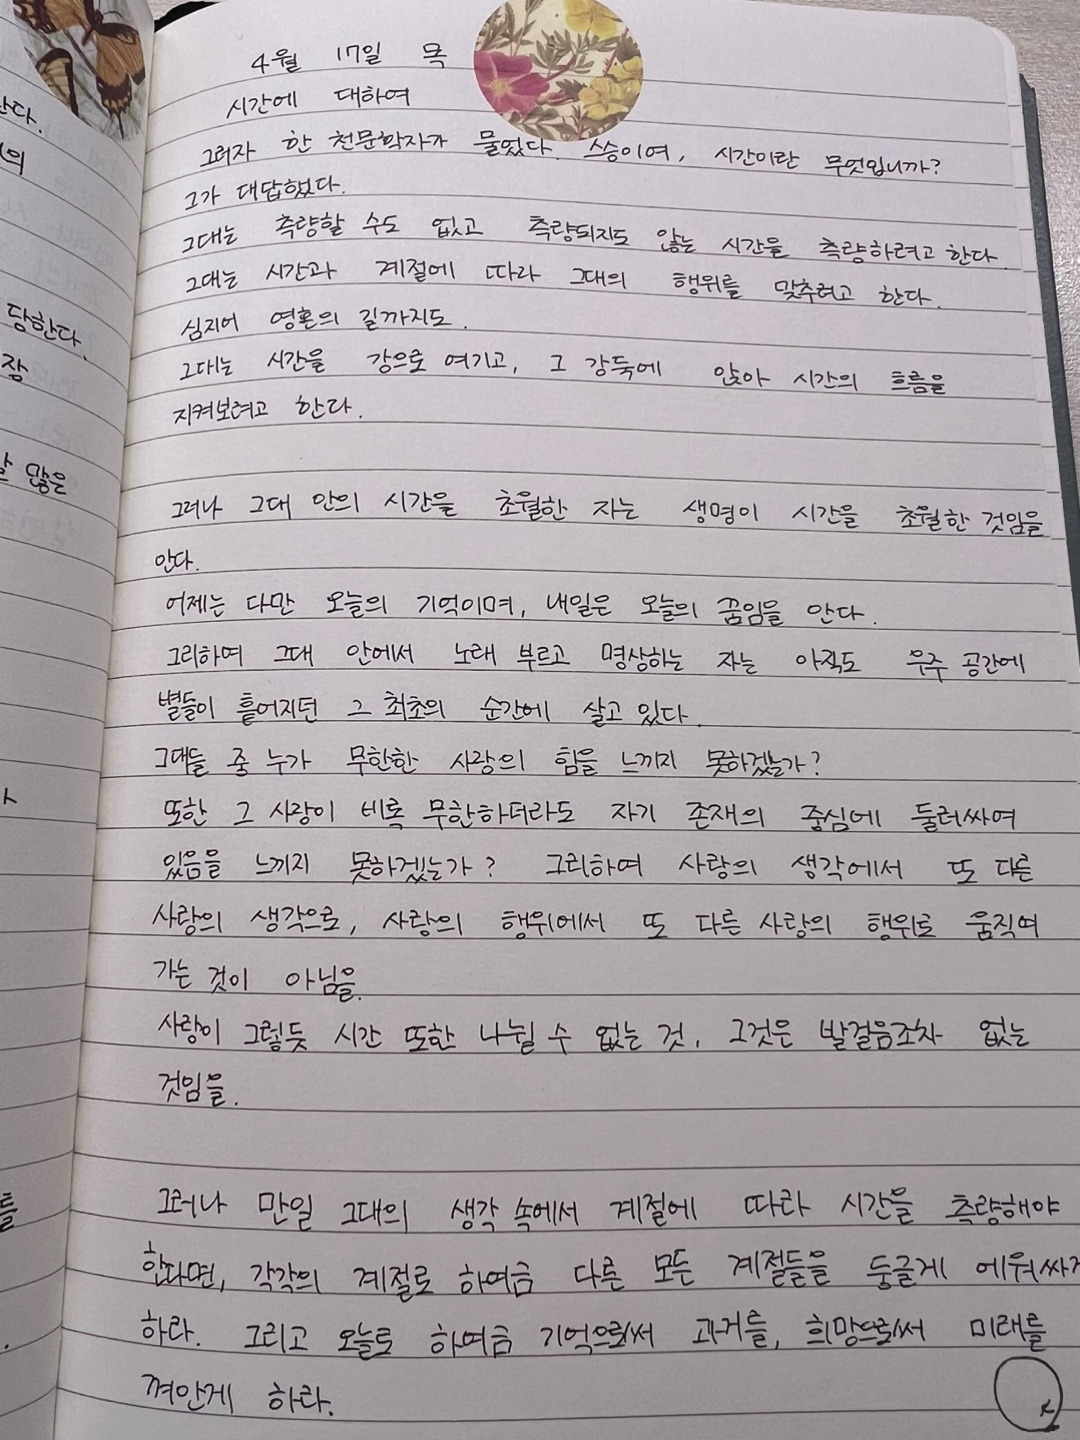 4월 17일 목
시간에 대하여
그러자 한 천문학자가 물었다. 스승이여, 시간이란 무엇입니까?
그가 대답했다.
그대는 측량할 수도 없고 측량되지도 않는 시간을 측량하려고 한다.
그대는 시간과 계절에 따라 그대의 행위를 맞추려고 한다.
심지어 영혼의 길까지도.
그대는 시간을 강으로 여기고, 그 강둑에 앉아 시간의 흐름을
지켜보려고 한다.
그러나 그대 안의 시간을 초월한 자는 생명이 시간을 초월한 것임을
안다.
어제는 다만 오늘의 기억이며, 내일은 오늘의 꿈임을 안다.
그리하여 그대 안에서 노래 부르고 명상하는 자는 아직도 우주 공간에
별들이 흩어지던 그 최초의 순간에 살고 있다.
그대들 중 누가 무한한 사랑의 힘을 느끼지 못하겠는가?
또한 그 사랑이 비록 무한하더라도 자기 존재의 중심에 둘러싸여
있음을 느끼지 못하겠는가? 그리하여 사랑의 생각에서 또 다른
사랑의 생각으로, 사랑의 행위에서 또 다른 사랑의 행위로 움직여
가는 것이 아님을.
사랑이 그렇듯 시간 또한 나뉠 수 없는 것, 그것은 발걸음조차 없는
것임을.
그러나 만일 그대의 생각 속에서 계절에 따라 시간을 측량해야
한다면, 각각의 계절로 하여금 다른 모든 계절들을 둥글게 에워싸게
하라. 그리고 오늘로 하여금 기억으로써 과거를, 희망으로써 미래를
껴안게 하라.
란다.
의
당한다.
장
많은
를